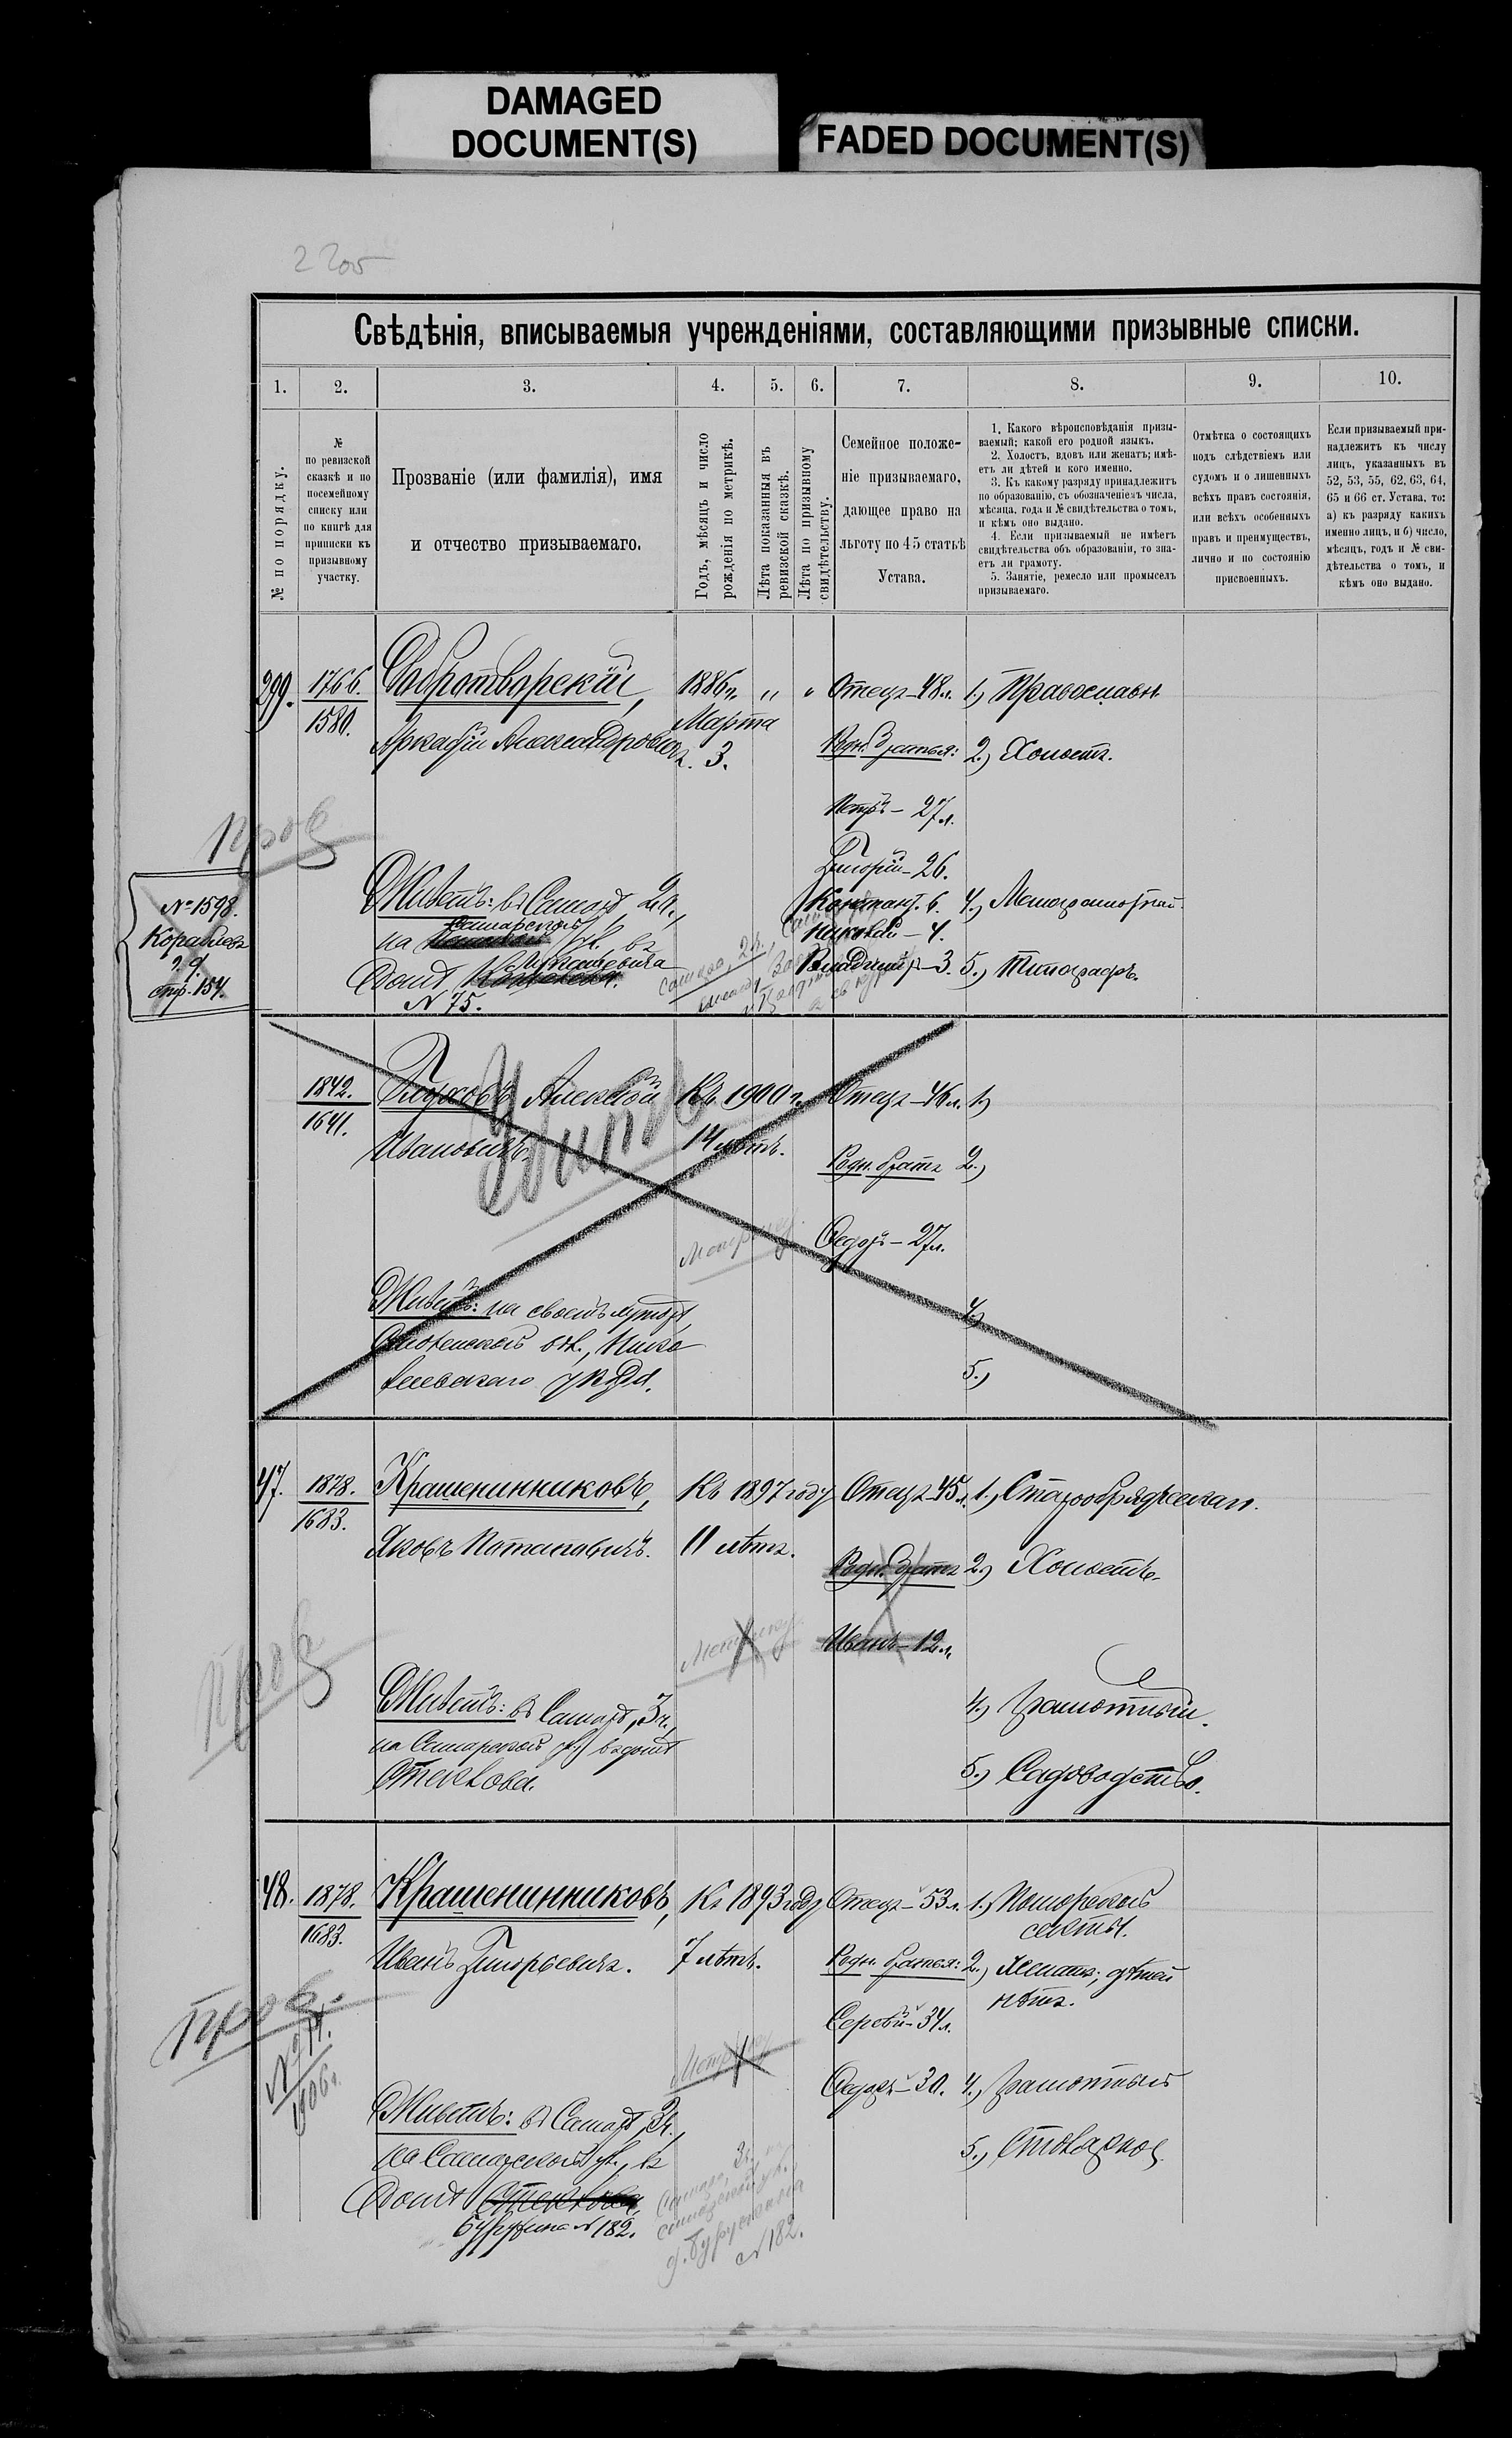 DAMAGED
DOCUMENT(S)
FADED DOCUMENT(S)
Свѣдѣнія, вписываемыя учрежденіями, составляющими призывные списки.
1. 2. 3. 4. 5. 6. 7. 8. 9. 10.
№ по порядку.
№
по ревизской
сказкѣ и по
посемейному
списку или
по книгѣ для
приписки къ
призывному
участку.
Прозваніе (или фамилія), имя
и отчество призываемаго.
Годъ, мѣсяцъ и число
рожденія по метрикѣ.
Лѣта показанныя въ
ревизской сказкѣ.
Лѣта по призывному
свидѣтельству.
Семейное положе-
ніе призываемаго,
дающее право на
льготу по 45 статьѣ
Устава.
1. Какого вѣроисповѣданія призы-
ваемый; какой его родной языкъ.
2. Холостъ, вдовъ или женатъ; имѣ-
етъ ли дѣтей и кого именно.
3. Къ какому разряду принадлежитъ
по образованію, съ обозначеніемъ числа,
мѣсяца, года и № свидѣтельства о томъ,
и кѣмъ оно выдано.
4. Если призываемый не имѣетъ
свидѣтельства объ образованіи, то зна-
етъ ли грамоту.
5. Занятіе, ремесло или промыселъ
призываемаго.
Отмѣтка о состоящихъ
подъ слѣдствіемъ или
судомъ и о лишенныхъ
всѣхъ правъ состоянія,
или всѣхъ особенныхъ
правъ и преимуществъ,
лично и по состоянію
присвоенныхъ.
Если призываемый при-
надлежитъ къ числу
лицъ, указанныхъ въ
52, 53, 55, 62, 63, 64,
65 и 66 ст. Устава, то:
а) къ разряду какихъ
именно лицъ, и б) число,
мѣсяцъ, годъ и № сви-
дѣтельства о томъ, и
кѣмъ оно выдано.
299.
1766.
1580.
Добротворскій,
Аркадій Александровичъ
1886 г.
Марта
3.
Отецъ – 48 л.
Родн. братья:
Петръ – 27 л.
Григорій – 26.
Констант. 6.
Николай – 4.
Владиміръ – 3.
1.) Православн.
2.) Холостъ.
4.) Малограмотный
5.) Типографъ.
Живетъ: въ Самарѣ, 2 ч.,
Самарской
на ул., въ
домѣ
N 75.
Пров
№ 1598.
2 ч.
стр. 154.
1842.
1641.
Алексѣй
Ивановичъ.
Къ 1900 г.
14 лѣтъ.
Отецъ – 46 л.
Родн. братъ
Федоръ – 27 л.
1.)
2.)
4.)
5.)
Живетъ: на своемъ хуторѣ,
вол., Нико
лаевскаго уѣзда.
47.
1878.
1683.
Крашенинниковъ,
Яковъ Потаповичъ.
Къ 1897 году
11 лѣтъ.
Отецъ – 45 л.
Родн. братъ
Иванъ – 12 л.
1.) Старообрядческаго.
2.) Холостъ.
4.) Грамотный.
5.) Садоводство.
Живетъ: въ Самарѣ, 3 ч.,
на Самарской ул., въ домѣ
Стеклова.
Пров
48.
1878.
1683.
Крашенинниковъ,
Иванъ Григорьевичъ.
Къ 1893 году
7 лѣтъ.
Отецъ – 53 л.
Родн. братья:
Сергѣй – 34 л.
Федоръ – 30.
1.) Поморской
секты.
2.) Женатъ; дѣтей
нѣтъ.
4.) Грамотный
5.) Столярное
Живетъ: въ Самарѣ, 3 ч.,
на Самарской ул., въ
домѣ Стеклова,
N 182.
Пров.
1906 г.